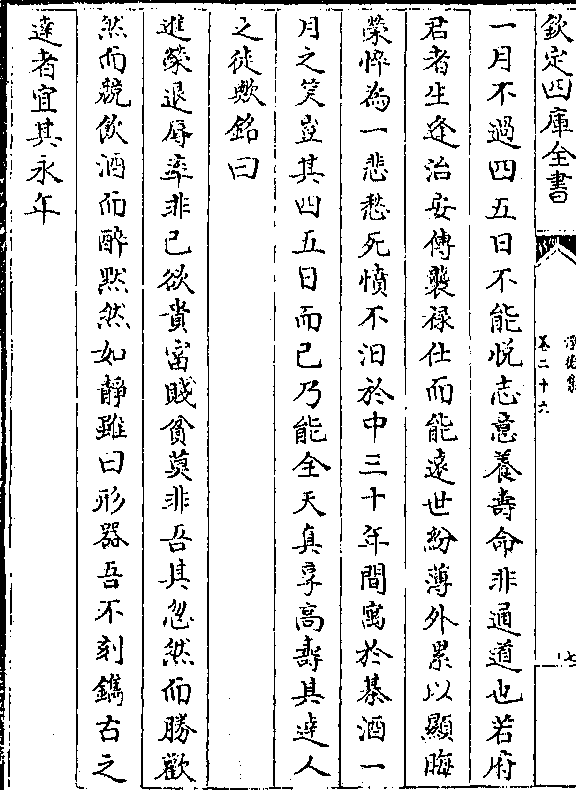 欽定四庫全書
淨德集
卷二十六
七
一月不過四五日不能悅志意養壽命非通道也若府
君者生逢治安傳襲祿仕而能遠世紛薄外累以顯晦
榮悴為一悲愁死憤不汨於中三十年間寓於棊酒一
月之笑豈其四五日而已乃能全天真享高壽其達人
之徒歟銘曰
進榮退辱率非己欲貴富賤貧奠非吾其忽然而勝歡
然而競飲酒而醉黙然如靜雖曰形器吾不刻鐫古之
達者宜其永年